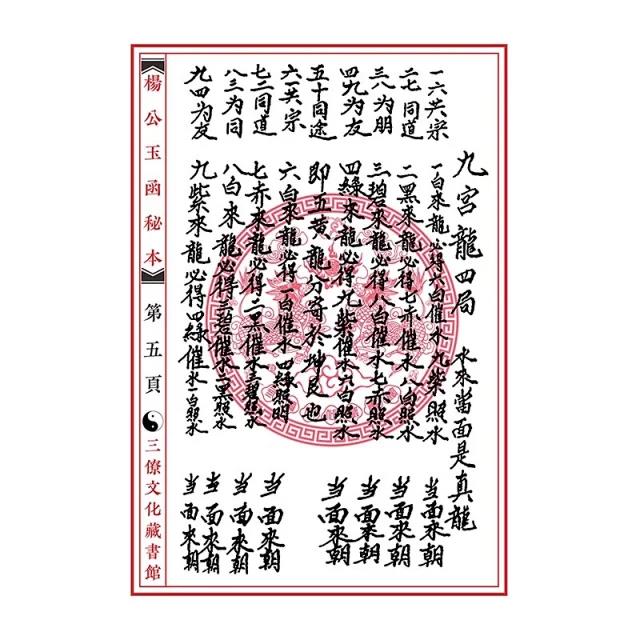 九宮龍四局 水來當面是真龍
一六共宗 一白來龍必得六白催水九紫照水 当面來朝
二七同道 二黑來龍必得七赤催水八白照水 当面來朝
三八为朋 三碧來龍必得八白催水七赤照水 当面來朝
四九为友 四綠來龍必得九紫催水六白照水 当面來朝
五十同途 即五黃龍分寄於坤艮也
六一共宗 六白來龍必得一白催水四綠照明 当面來朝
七二同道 七赤來龍必得二黑催水三碧照水 当面來朝
八三为同 八白來龍必得三碧催水二黑照水 当面來朝
九四为友 九紫來龍必得四綠催水一白照水 当面來朝
楊公玉函秘本 第五頁 三僚文化藏書館